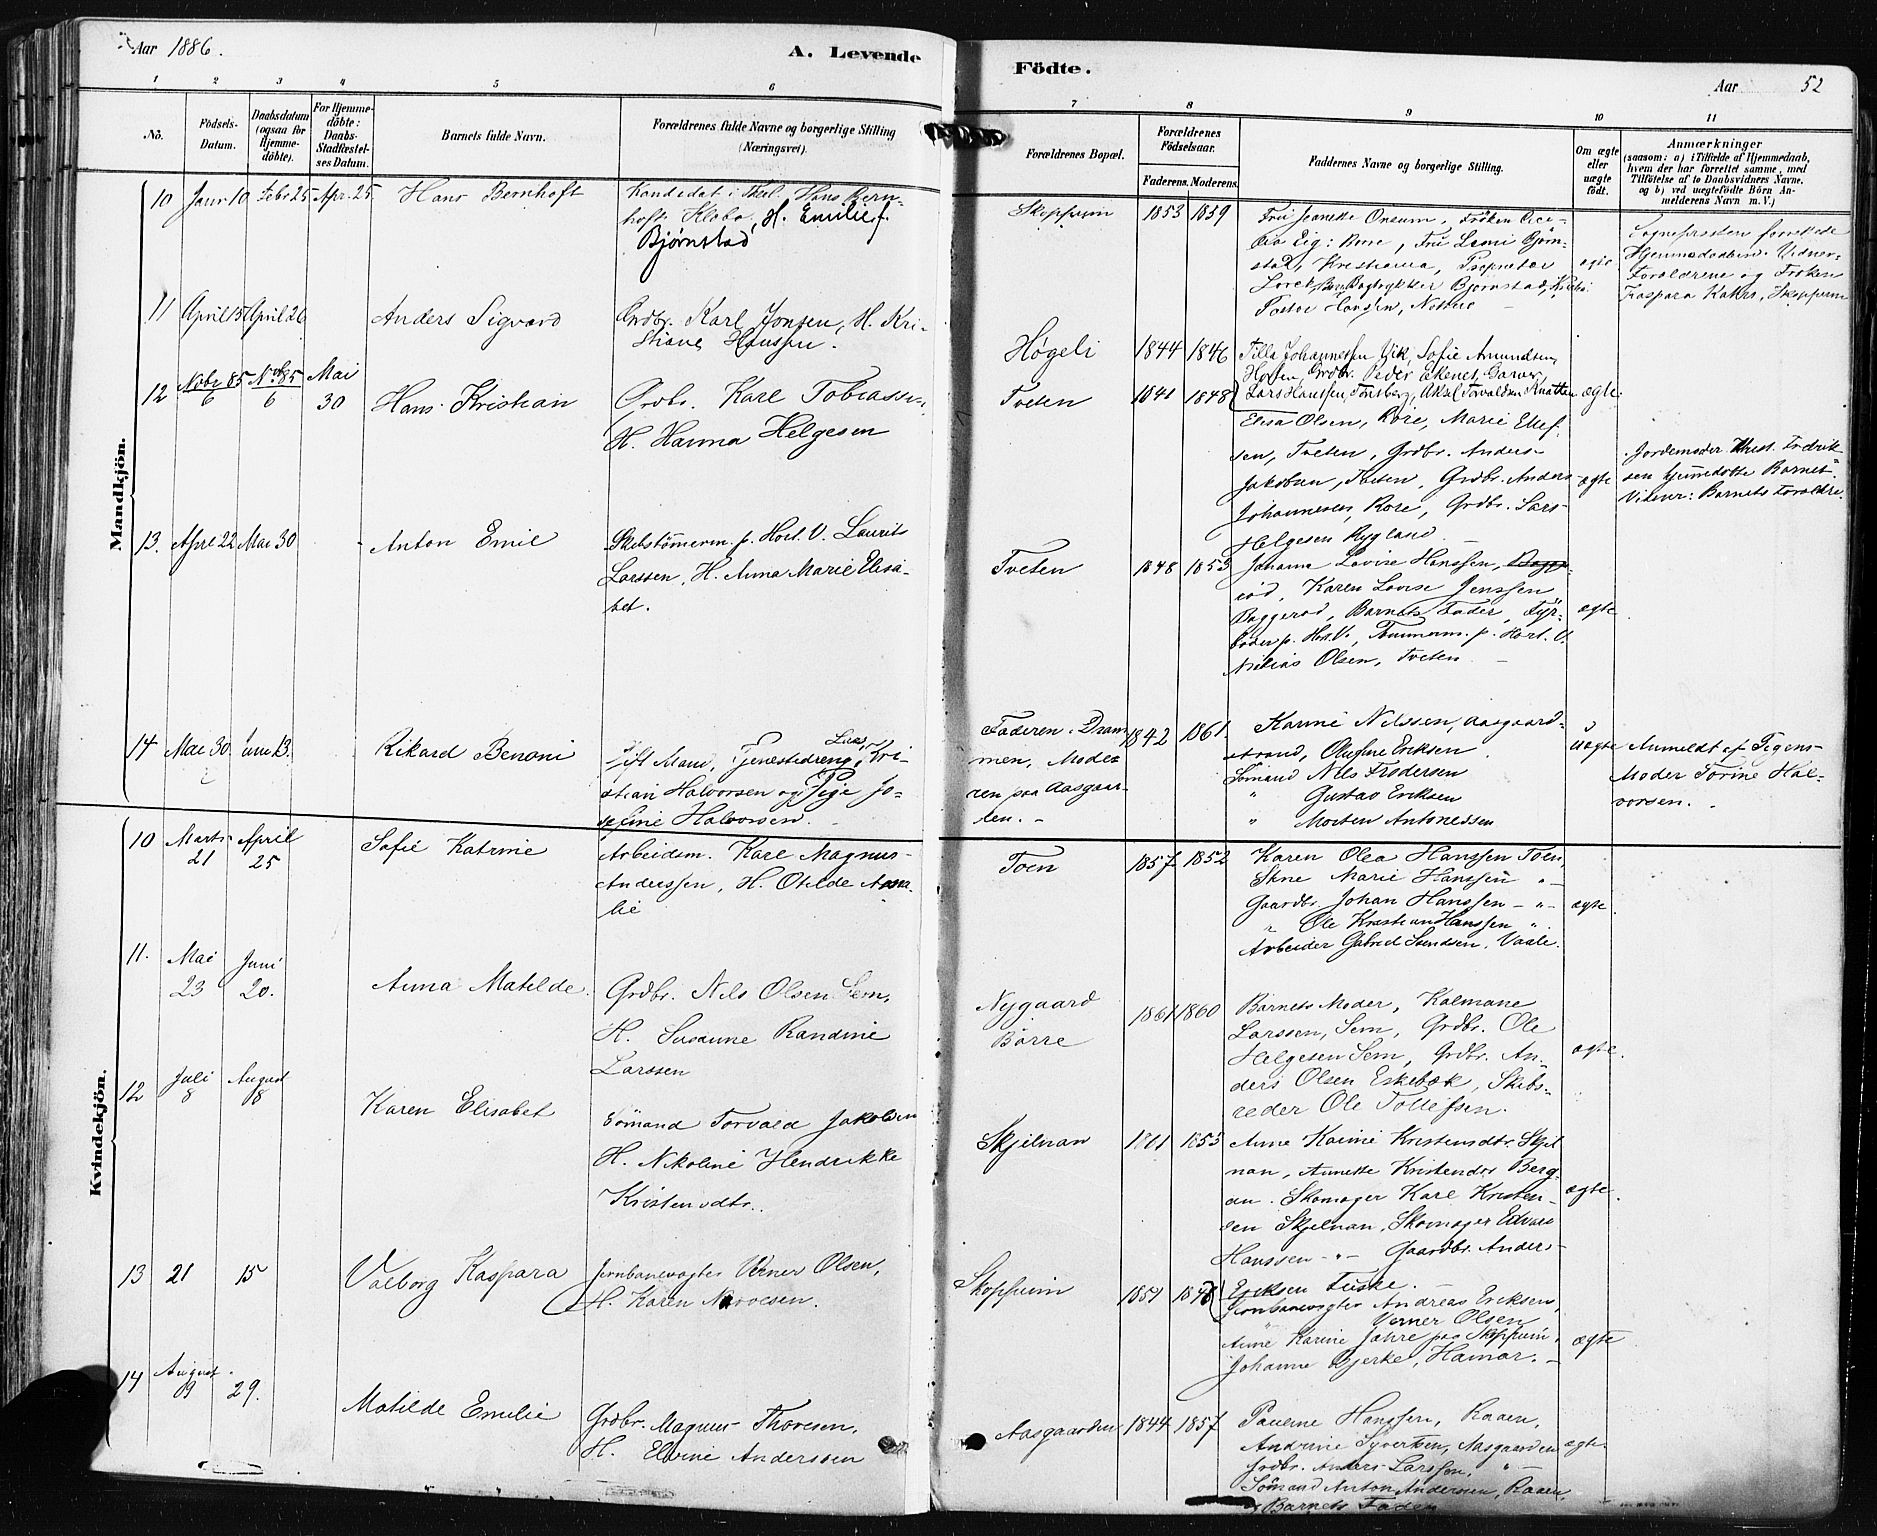 Aar 1886.
A. Levende
Födte.
Aar 52
1 2 3 4 5 6
7 8 9 10 11
No.
Födsels-
Datum.
Daabsdatum
(ogsaa för
Hjemme-
döbte).
For Hjemme-
döbte:
Daabs-
Stadfæstel-
ses Datum.
Barnets fulde Navn.
Forældrenes fulde Navne og borgerlige Stilling
(Næringsvei).
Forældrenes Bopæl.
Forældrenes
Födselsaar.
Faderens. Moderens.
Faddernes Navne og borgerlige Stilling.
Om ægte
eller
uægte
födt.
Anmærkninger
(saasom: a) i Tilfælde af Hjemmedaab,
hvem der har forrettet samme, med
Tilföielse af to Daabsvidners Navne.
og b) ved uægtefödte Börn An-
melderens Navn m. V.)
Mandkjön.
10 Janr 10 Febr 25 Apr. 25
Hans Bernhoft
Kandidat i Hans Bern-
hoft Klebo, H. Emilie f.
Bjørnstad
Skoppum 1853 1859
Fru Jeanette Onsum, Frøken
Eig: Borre, Fru Bjørn-
stad, Kristiania, Proprietør
Bogtrykker Bjørnstad,
Hansen,
ægte
Sognepresten forrettede
Hjemmedaaben. Vidner:
Forældrene og Frøken
Kaspara Skoppum
11 April 15 April 26
Anders Sigvard
Grdbr. Karl Jonsen, H. Kri-
stiane Hanssen.
Høgeli 1844 1846
Tilla Johannessen Vik, Sofie Amundsen,
Horten, Grdbr. Peder
Lars Hanssen, Tønsberg, Aksel Torvaldsen Knatten
ægte
12 Nobr 85 6 Nobr 85 6 Mai 30
Hans Kristian
Grdbr. Karl Tobiassen,
H. Hanna Helgesen
Tveten 1841 1848
Elisa Olsen, Røre, Marie Ellef-
sen, Tveten, Grdbr. Anders
Jakobsen, Tveten, Grdbr. Anders
Johannesen, Røre, Grdbr. Lars
Helgesen Rygland.
ægte
Jordemoder Fredrik-
sen hjemmedøbte Barnet
Vidner: Barnets Forældre.
13. April 22 Mai 30
Anton Emil
Skibstömerm. p. Hort. V. Laurits
Larssen, H. Anna Marie Elisa-
bet.
Tveten 1848 1853
Johanne Lovise Hanssen,
rød, Karen Lovise Jenssen
Baggerød, Barnets Fader, Fyr-
bøder p. Hort. V., Tømmerm. p. Hort. V.
Olsen, Tveten.
ægte.
14 Mai 30 Juni 13.
Rikard Benoni
Gift Mand, Tjenestedreng Lars Kri-
stian Halvorsen og Pige Jo-
sefine Halvorsen.
Faderen: Dram-
men, Mode-
ren paa Aasgaar-
den.
1842 1861
Karine Nilssen, Aasgaard-
strand, Olufine Eriksen
Sömand Nils Fredersen
" Gustav Eriksen
" Morten Antonessen
uægte
Anmeldt af Pigens
Moder Torine Hal-
vorsen.
Kvindekjön.
10 Marts 21 April 25
Sofie Katrine
Arbeidsm. Karl Magnus
Anderssen, H. Otilde Ama-
lie
Toen 1857 1852
Karen Olea Hanssen Toen
Marie Hanssen "
Gaardbr. Johan Hanssen "
" Ole Kristian Hanssen "
Arbeider Gabriel Svendsen, Vaale.
ægte.
11. Mai 23 Juni 20.
Anna Matilde
Grdbr. Nils Olsen Sem,
H. Susanne Randine
Larssen
Nygaard
Börre
1861 1860
Barnets Moder, Kalmane
Larssen, Sem, Grdbr. Ole
Helgesen Sem, Grdbr. An-
ders Olsen Eskebæk, Skibs-
reder Ole Tollefsen.
ægte.
12 Juli 8 August 8
Karen Elisabet
Sömand Torvald Jakobsen
H. Nikoline Hendrikke
Kristensdtr.
Skjelnan 1855
Anne Karine Kristensdtr. Skjel-
nan, Annette Kristensdtr Berg-
an. Skomager Karl Kristen-
sen Skjelnan, Skomager Edvard
Hanssen " Gaardbr. Anders
Eriksen Fuske.
ægte.
13 21 15
Valborg Kaspara
Jernbanevogter Verner Olsen,
H. Karen Narvesen.
Skoppum 1851 1848
Jernbanevogter Andreas Eriksen,
Verner Olsen
Anne Karine Jahre paa Skoppum,
Johanne Bjerke, Hamar.
ægte
14 August 9 29.
Matilde Emilie
Grdbr. Magnus Thoresen,
H. Elvine Anderssen
Aasgaarden 1844 1857
Pauline Hanssen, Raaen,
Andrine Syvertsen, Aasgaarden
Grdbr. Anders Larssen, "
Sömand Anton Andersen, Raaen,
Barnets Fader
ægte